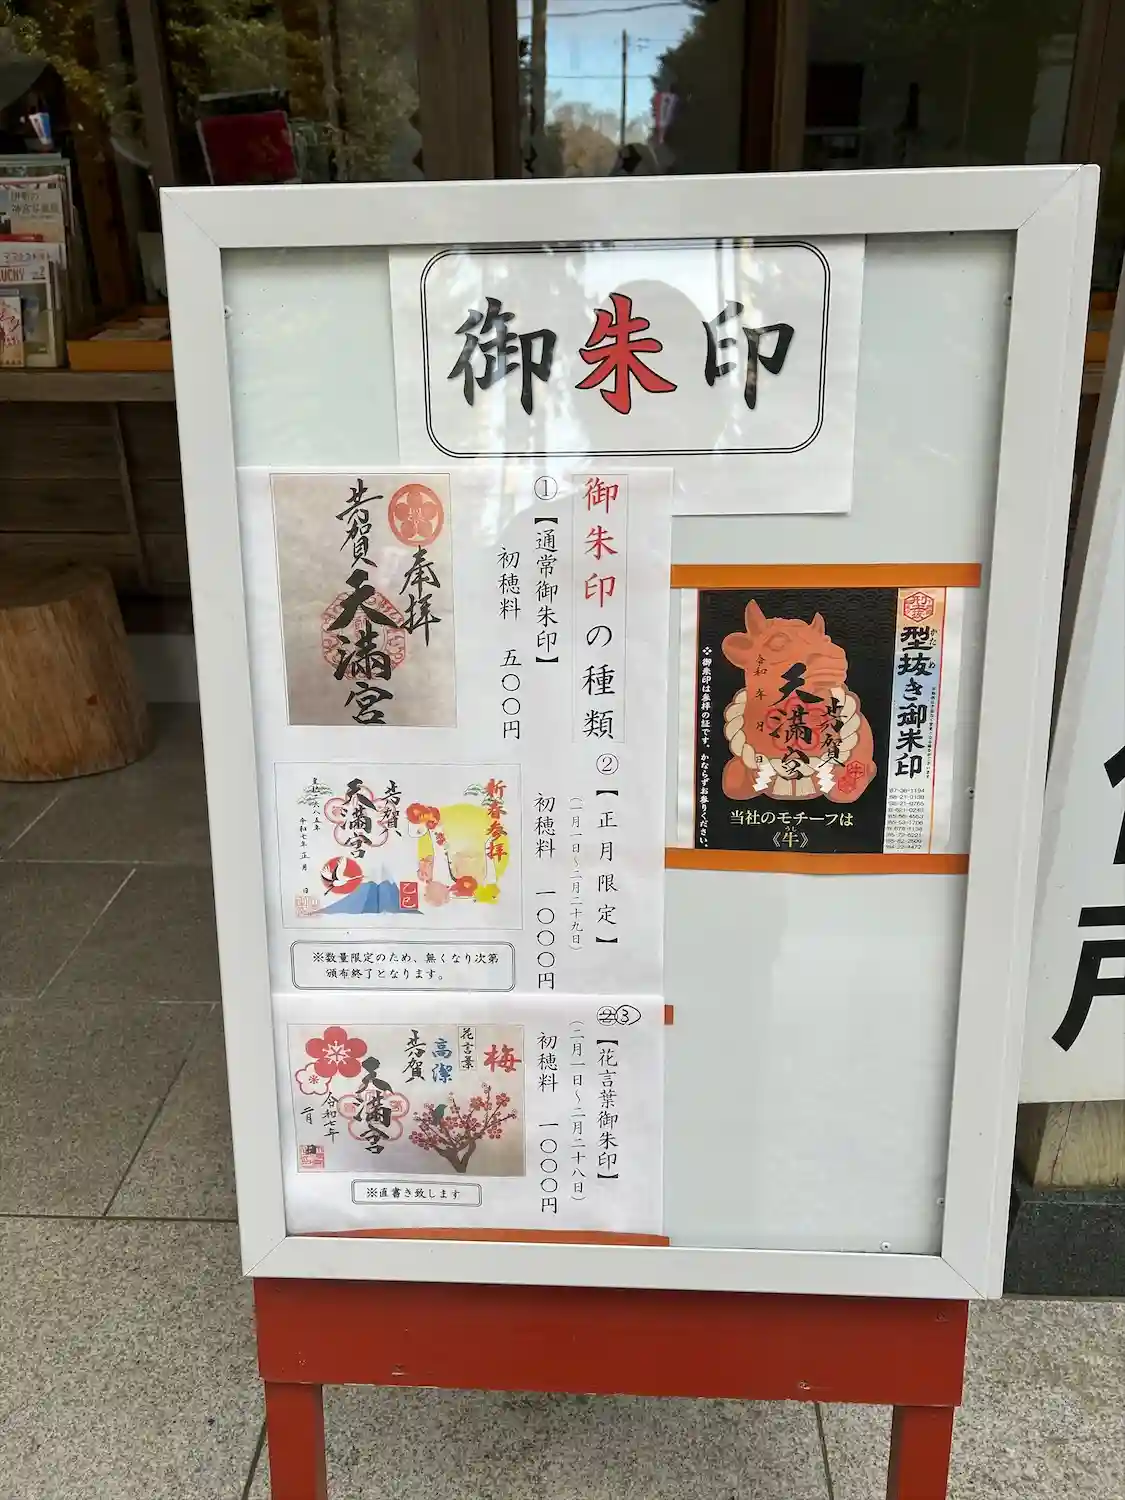 御朱印
御朱印の種類
①【通常御朱印】
初穂料 五〇〇円
奉拝
芳賀
天満宮
②【正月限定】
(一月一日～二月二十九日)
初穂料 一〇〇〇円
新春参拝
芳賀
天満宮
皇紀二六八五年
令和七年 正月 日
乙巳
※数量限定のため、無くなり次第
頒布終了となります。
②③【花言葉御朱印】
(二月一日～二月二十八日)
初穂料 一〇〇〇円
梅
花言葉
高潔
芳賀
天満宮
令和七年
二月 日
※直書き致します
型抜き御朱印
かた ぬ
芳賀
天満宮
令和 年 月 日
牛
※御朱印は参拝の証です。かならずお参りください。
当社のモチーフは
うし
《牛》